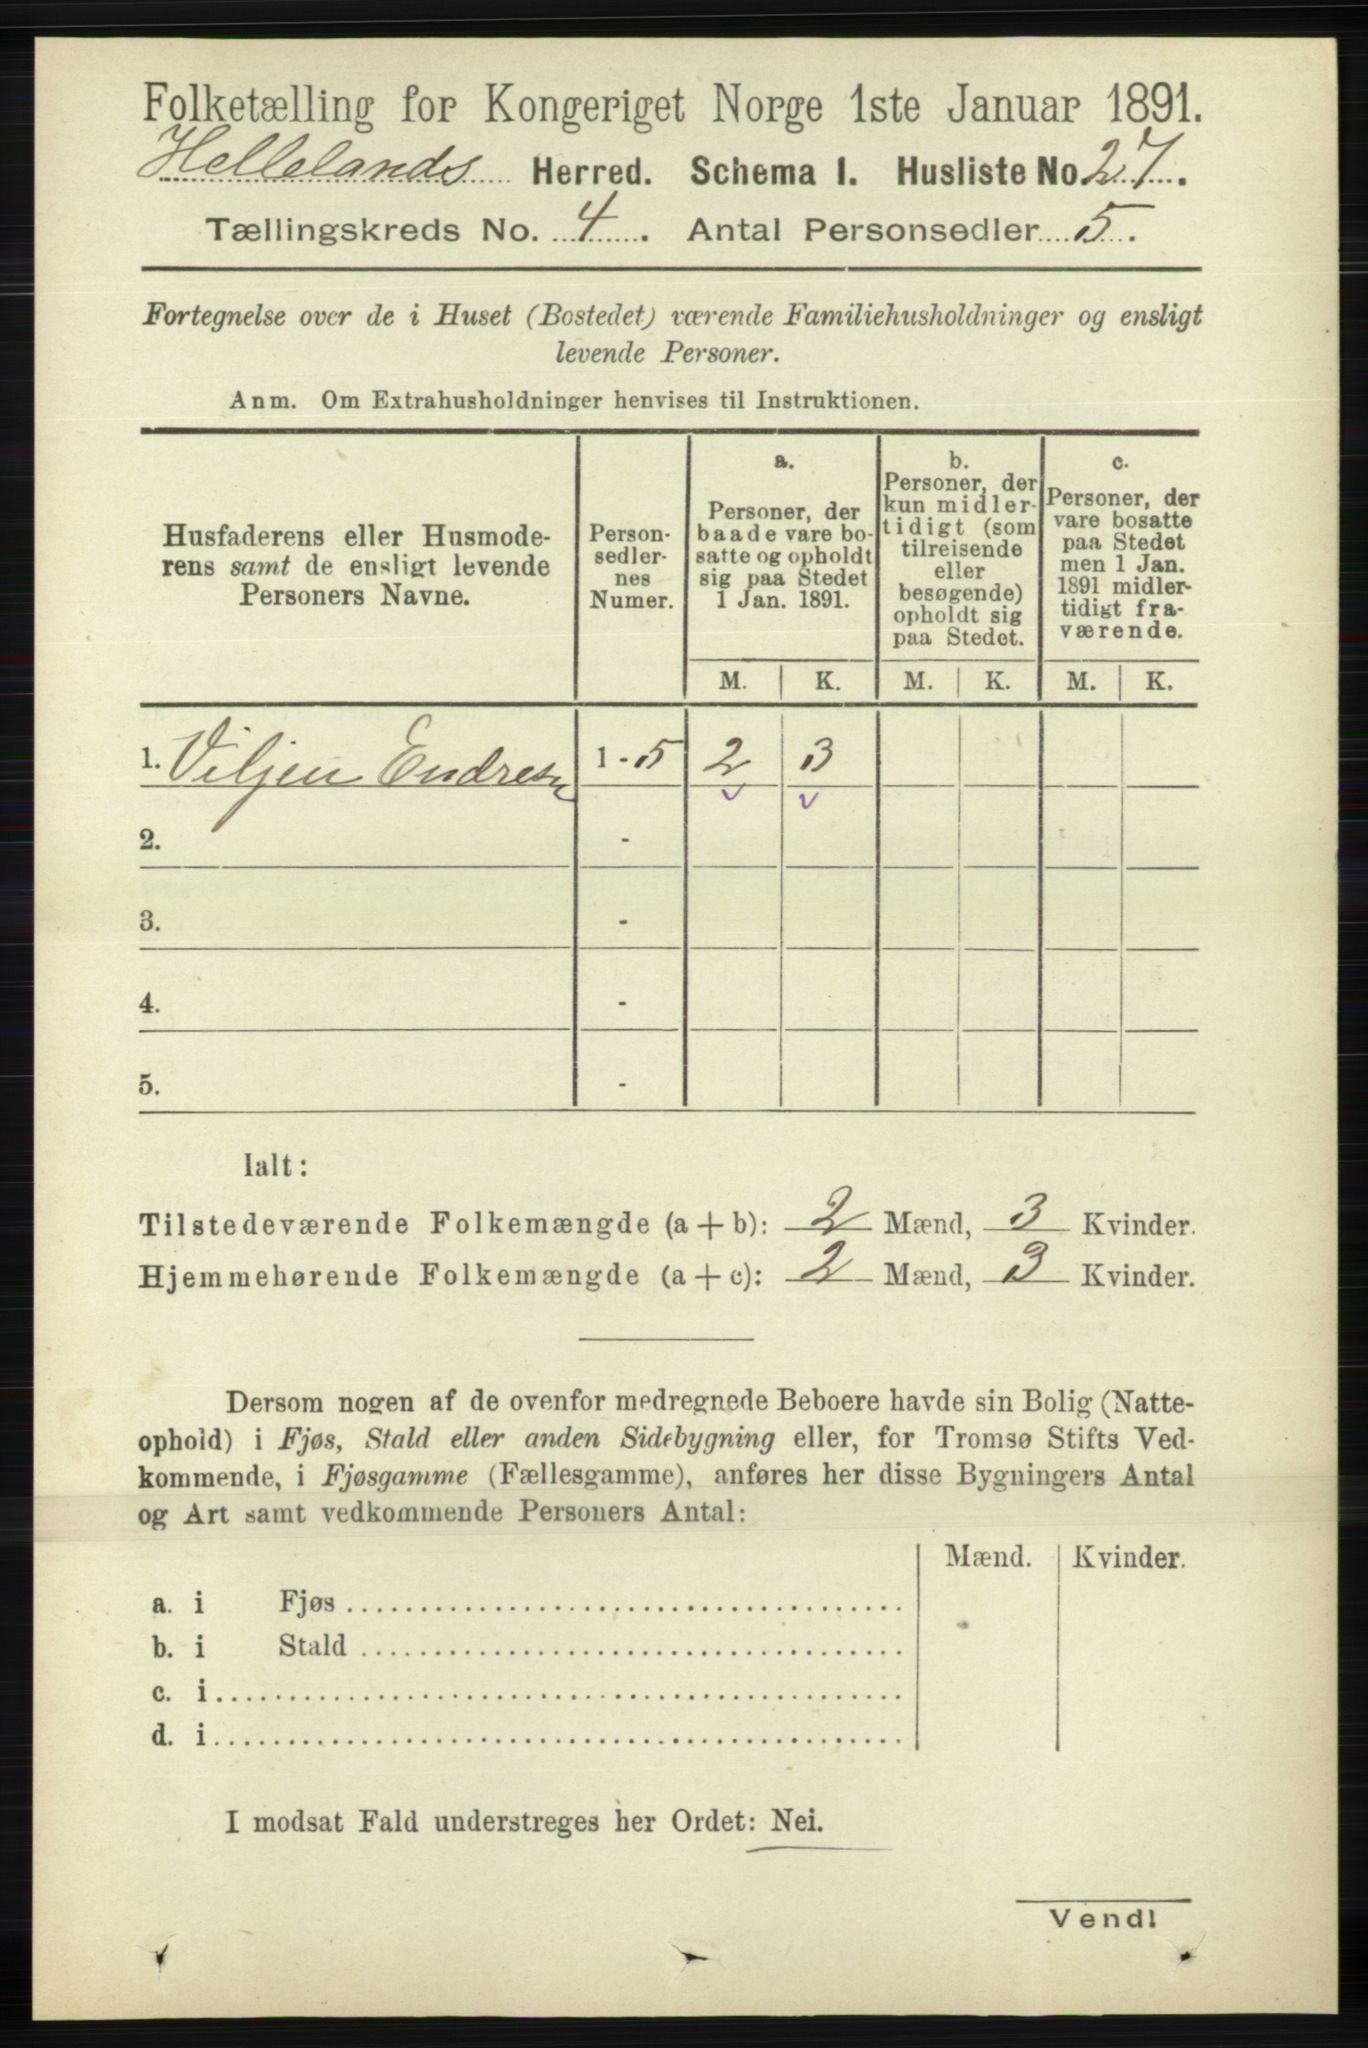 Folketælling for Kongeriget Norge 1ste Januar 1891.
Hellelands Herred. Schema I. Husliste No. 27.
Tællingskreds No. 4. Antal Personsedler 5.
Fortegnelse over de i Huset (Bostedet) værende Familiehusholdninger og ensligt
levende Personer.
Anm. Om Extrahusholdninger henvises til Instruktionen.
Husfaderens eller Husmode-
rens samt de ensligt levende
Personers Navne.
Person-
sedler-
nes
Numer.
a.
Personer, der
baade vare bo-
satte og opholdt
sig paa Stedet
1 Jan. 1891.
b.
Personer, der
kun midler-
tidigt (som
tilreisende
eller
besøgende)
opholdt sig
paa Stedet.
c.
Personer, der
vare bosatte
paa Stedet
men 1 Jan.
1891 midler-
tidigt fra-
værende.
M. K. M. K. M. K.
1. Viljen Endresn 1 - 5 2 3
2. -
3. -
4. -
5. -
Ialt:
Tilstedeværende Folkemængde (a + b): 2 Mænd, 3 Kvinder.
Hjemmehørende Folkemængde (a + c): 2 Mænd, 3 Kvinder.
Dersom nogen af de ovenfor medregnede Beboere havde sin Bolig (Natte-
ophold) i Fjøs, Stald eller anden Sidebygning eller, for Tromsø Stifts Ved-
kommende, i Fjøsgamme (Fællesgamme), anføres her disse Bygningers Antal
og Art samt vedkommende Personers Antal:
Mænd. Kvinder.
a. i Fjøs
b. i Stald
c. i
d. i
I modsat Fald understreges her Ordet: Nei.
Vend!